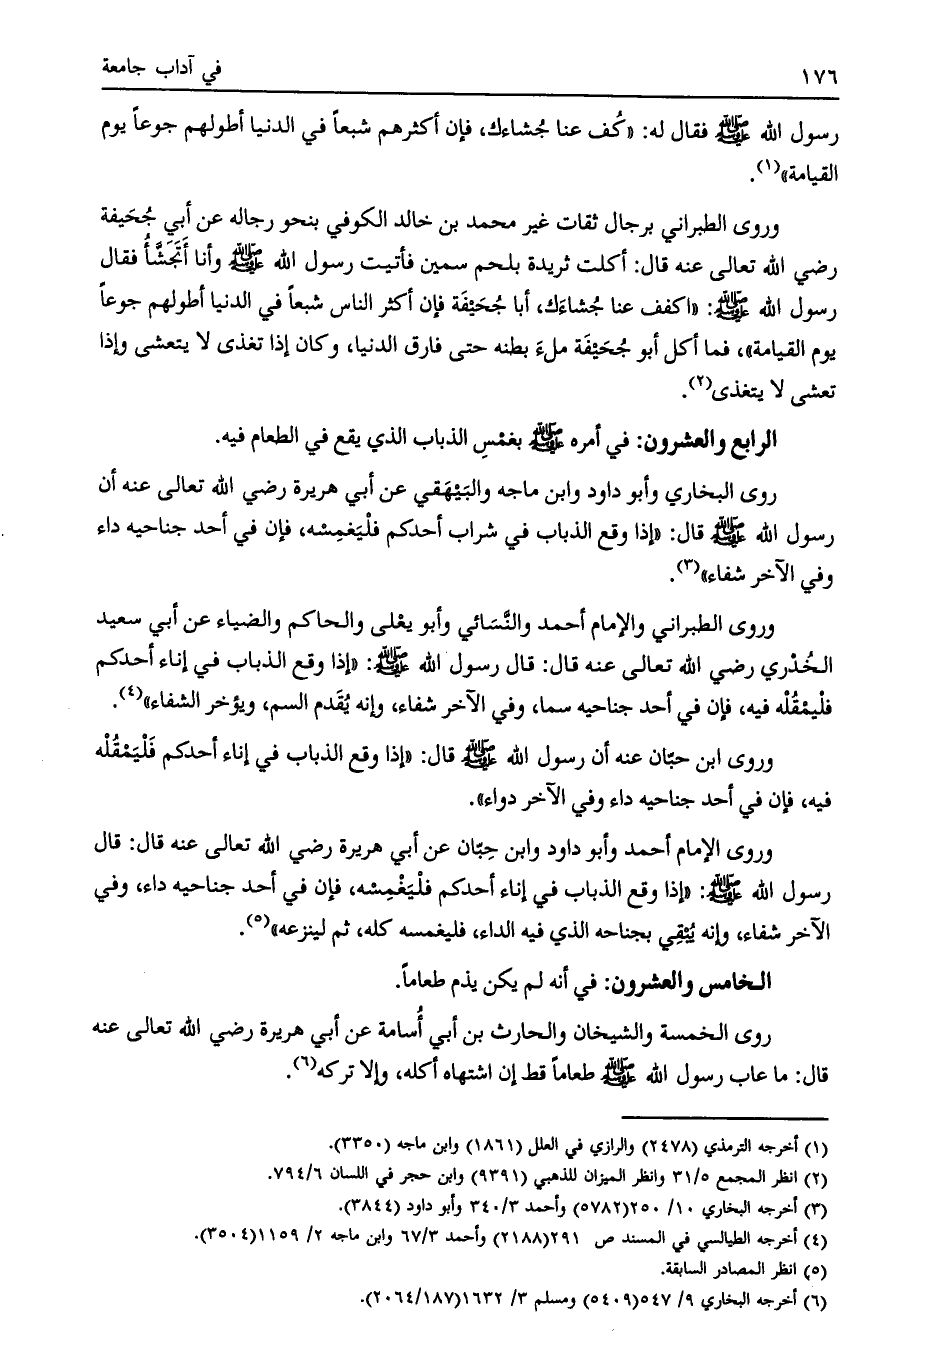 ١٧٦ في آداب جامعة
رسول الله ﷺ فقال له: «كُف عنا جُشاءك، فإن أكثرهم شبعاً في الدنيا أطولهم جوعاً يوم
القيامة»(١).
وروى الطبراني برجال ثقات غير محمد بن خالد الكوفي بنحو رجاله عن أبي جُحَيفة
رضي الله تعالى عنه قال: أكلت ثريدة بلحم سمين فأتيت رسول الله ﷺ وأنا أَتَجَشَّأُ فقال
رسول الله ﷺ: «اكفف عنا جُشاءَك، أبا جُحَيْفَة فإن أكثر الناس شبعاً في الدنيا أطولهم جوعاً
يوم القيامة»، فما أكل أبو جُحَيْفَة ملءَ بطنه حتى فارق الدنيا، وكان إذا تغذى لا يتعشى وإذا
تعشى لا يتغذى(٢).
الرابع والعشرون: في أمره ﷺ بغمْسِ الذباب الذي يقع في الطعام فيه.
روى البخاري وأبو داود وابن ماجه والبَيْهَقي عن أبي هريرة رضي الله تعالى عنه أن
رسول الله ﷺ قال: «إذا وقع الذباب في شراب أحدكم فلْيَغمِسْه، فإن في أحد جناحيه داء
وفي الآخر شفاء»(٣).
وروى الطبراني والإمام أحمد والنَّسَائي وأبو يعْلى والحاكم والضياء عن أبي سعيد
الخُدْري رضي الله تعالى عنه قال: قال رسول الله ﷺ: «إذا وقع الذباب في إناء أحدكم
فلْيمْقُلْه فيه، فإن في أحد جناحيه سما، وفي الآخر شفاء، وإنه يُقَدم السم، ويؤخر الشفاء»(٤).
وروى ابن حبّان عنه أن رسول الله ﷺ قال: «إذا وقع الذباب في إناء أحدكم فَلْيَمْقُلْه
فيه، فإن في أحد جناحيه داء وفي الآخر دواء».
وروى الإمام أحمد وأبو داود وابن حِبّان عن أبي هريرة رضي الله تعالى عنه قال: قال
رسول الله ﷺ: «إذا وقع الذباب في إناء أحدكم فلْيَغْمِسْه، فإن في أحد جناحيه داء، وفي
الآخر شفاء، وإنه يُتْقِي بجناحه الذي فيه الداء، فليغمسه كله، ثم لينزعه»(٥).
الخامس والعشرون: في أنه لم يكن يذم طعاماً.
روى الخمسة والشيخان والحارث بن أبي أُسامة عن أبي هريرة رضي الله تعالى عنه
قال: ما عاب رسول الله ﷺ طعاماً قط إن اشتهاه أكله، وإلا تركه(٦).
(١) أخرجه الترمذي (٢٤٧٨) والرازي في العلل (١٨٦١) وابن ماجه (٣٣٥٠).
(٢) انظر المجمع ٣١/٥ وانظر الميزان للذهبي (٩٣٩١) وابن حجر في اللسان ٧٩٤/٦.
(٣) أخرجه البخاري ١٠/ ٢٥٠(٥٧٨٢) وأحمد ٣٤٠/٣ وأبو داود (٣٨٤٤).
(٤) أخرجه الطيالسي في المسند ص ٢٩١(٢١٨٨) وأحمد ٦٧/٣ وابن ماجه ٢/ ١١٥٩(٣٥٠٤).
(٥) انظر المصادر السابقة.
(٦) أخرجه البخاري ٩/ ٥٤٧(٥٤٠٩) ومسلم ٣/ ١٦٣٢(٢٠٦٤/١٨٧).